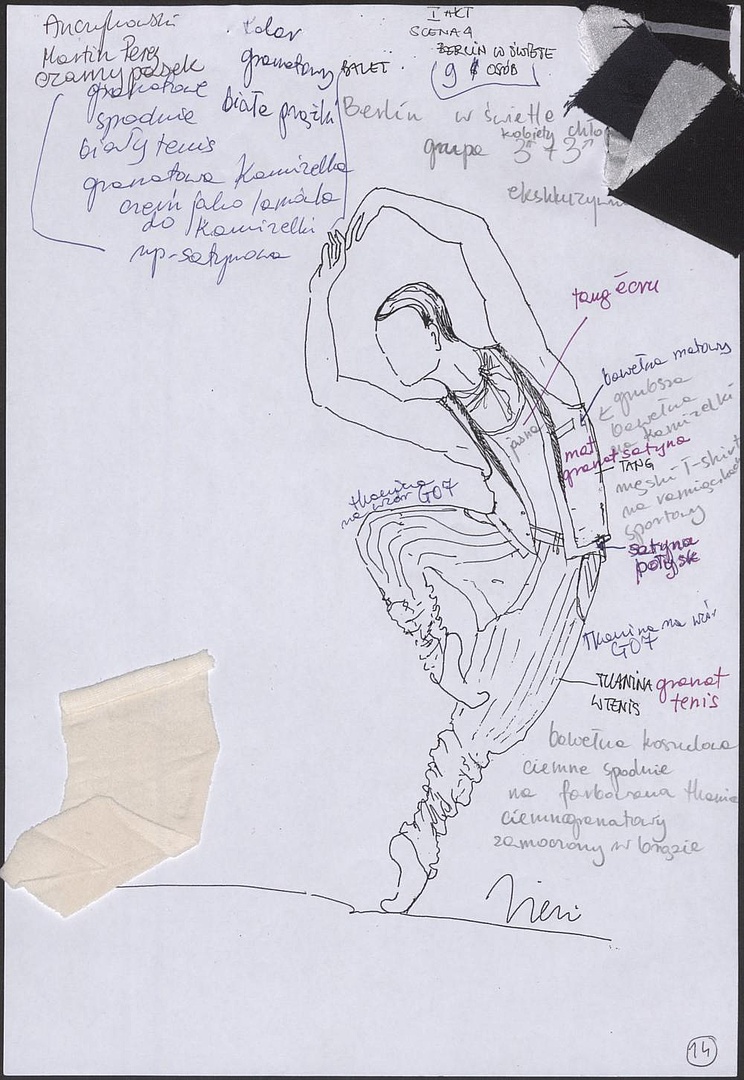 Martin Perez
czarny pasek
granatowe
spodnie
biały tenis
granatowa Kamizelka
czerń jako lamówka
do Kamizelki
np-satynowa
Kolor
granatowy
białe prążki
BALET.
I AKT
SCENA 4
BERLIN W ŚWIETLE
9 OSÓB
Berlin w świetle
kobiety chło
grupa 3 + 3
tang écru
bawełna matowy
grubsza
bawełna
na kamizelki
jasna
mat
granat satyna
TANG
męski T-shirt
na ramiączkach
sportowy
satyna
połysk
tkanina
na wzór GO7
Tkanina na wzór
GO7
TKANINA granat
W TENIS tenis
bawełna koszulowa
ciemne spodnie
na farbowana tkanina
ciemnogranatowy
zamoczony w brązie
14